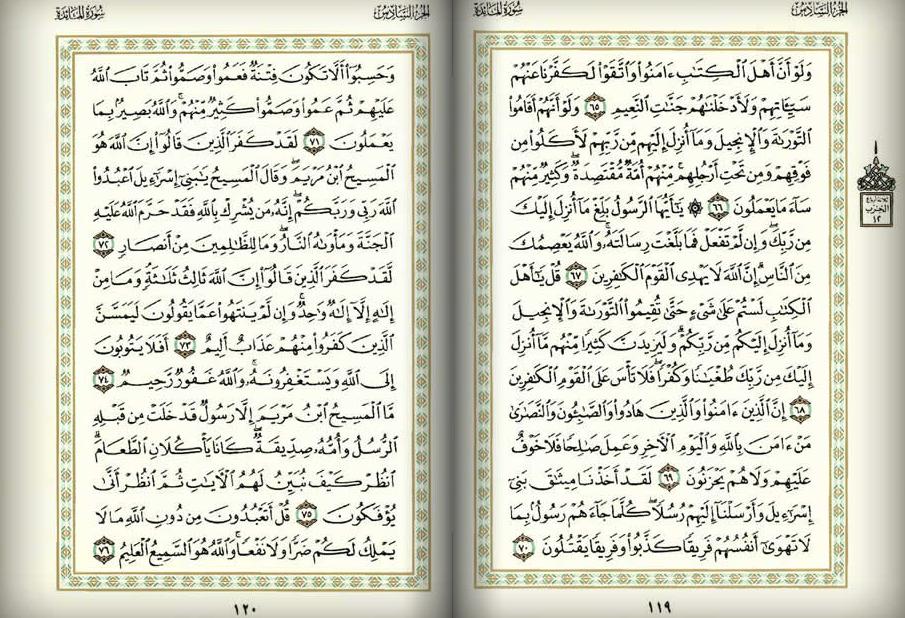 الجزء السادس
سورة المائدة
وَلَوْ أَنَّ أَهْلَ ٱلْكِتَٰبِ ءَامَنُوا۟ وَٱتَّقَوْا۟ لَكَفَّرْنَا عَنْهُمْ
سَيِّـَٔاتِهِمْ وَلَأَدْخَلْنَٰهُمْ جَنَّٰتِ ٱلنَّعِيمِ ٦٥ وَلَوْ أَنَّهُمْ أَقَامُوا۟
ٱلتَّوْرَىٰةَ وَٱلْإِنجِيلَ وَمَآ أُنزِلَ إِلَيْهِم مِّن رَّبِّهِمْ لَأَكَلُوا۟ مِن
فَوْقِهِمْ وَمِن تَحْتِ أَرْجُلِهِم ۚ مِّنْهُمْ أُمَّةٌ مُّقْتَصِدَةٌ ۖ وَكَثِيرٌ مِّنْهُمْ
سَآءَ مَا يَعْمَلُونَ ٦٦ ۞ يَٰٓأَيُّهَا ٱلرَّسُولُ بَلِّغْ مَآ أُنزِلَ إِلَيْكَ
مِن رَّبِّكَ ۖ وَإِن لَّمْ تَفْعَلْ فَمَا بَلَّغْتَ رِسَالَتَهُۥ ۚ وَٱللَّهُ يَعْصِمُكَ
مِنَ ٱلنَّاسِ ۗ إِنَّ ٱللَّهَ لَا يَهْدِى ٱلْقَوْمَ ٱلْكَٰفِرِينَ ٦٧ قُلْ يَٰٓأَهْلَ
ٱلْكِتَٰبِ لَسْتُمْ عَلَىٰ شَىْءٍ حَتَّىٰ تُقِيمُوا۟ ٱلتَّوْرَىٰةَ وَٱلْإِنجِيلَ
وَمَآ أُنزِلَ إِلَيْكُم مِّن رَّبِّكُمْ ۗ وَلَيَزِيدَنَّ كَثِيرًا مِّنْهُم مَّآ أُنزِلَ
إِلَيْكَ مِن رَّبِّكَ طُغْيَٰنًا وَكُفْرًا ۖ فَلَا تَأْسَ عَلَى ٱلْقَوْمِ ٱلْكَٰفِرِينَ
٦٨ إِنَّ ٱلَّذِينَ ءَامَنُوا۟ وَٱلَّذِينَ هَادُوا۟ وَٱلصَّٰبِـُٔونَ وَٱلنَّصَٰرَىٰ
مَنْ ءَامَنَ بِٱللَّهِ وَٱلْيَوْمِ ٱلْـَٔاخِرِ وَعَمِلَ صَٰلِحًا فَلَا خَوْفٌ
عَلَيْهِمْ وَلَا هُمْ يَحْزَنُونَ ٦٩ لَقَدْ أَخَذْنَا مِيثَٰقَ بَنِىٓ
إِسْرَٰٓءِيلَ وَأَرْسَلْنَآ إِلَيْهِمْ رُسُلًا ۖ كُلَّمَا جَآءَهُمْ رَسُولٌۢ بِمَا
لَا تَهْوَىٰٓ أَنفُسُهُمْ فَرِيقًا كَذَّبُوا۟ وَفَرِيقًا يَقْتُلُونَ ٧٠
١١٩
ثلاثة أرباع
الحزب
١٢
الجزء السادس
سورة المائدة
وَحَسِبُوٓا۟ أَلَّا تَكُونَ فِتْنَةٌ فَعَمُوا۟ وَصَمُّوا۟ ثُمَّ تَابَ ٱللَّهُ
عَلَيْهِمْ ثُمَّ عَمُوا۟ وَصَمُّوا۟ كَثِيرٌ مِّنْهُمْ ۚ وَٱللَّهُ بَصِيرٌۢ بِمَا
يَعْمَلُونَ ٧١ لَقَدْ كَفَرَ ٱلَّذِينَ قَالُوٓا۟ إِنَّ ٱللَّهَ هُوَ
ٱلْمَسِيحُ ٱبْنُ مَرْيَمَ ۖ وَقَالَ ٱلْمَسِيحُ يَٰبَنِىٓ إِسْرَٰٓءِيلَ ٱعْبُدُوا۟
ٱللَّهَ رَبِّى وَرَبَّكُمْ ۖ إِنَّهُۥ مَن يُشْرِكْ بِٱللَّهِ فَقَدْ حَرَّمَ ٱللَّهُ عَلَيْهِ
ٱلْجَنَّةَ وَمَأْوَىٰهُ ٱلنَّارُ ۖ وَمَا لِلظَّٰلِمِينَ مِنْ أَنصَارٍ ٧٢
لَّقَدْ كَفَرَ ٱلَّذِينَ قَالُوٓا۟ إِنَّ ٱللَّهَ ثَالِثُ ثَلَٰثَةٍ ۘ وَمَا مِنْ
إِلَٰهٍ إِلَّآ إِلَٰهٌ وَٰحِدٌ ۚ وَإِن لَّمْ يَنتَهُوا۟ عَمَّا يَقُولُونَ لَيَمَسَّنَّ
ٱلَّذِينَ كَفَرُوا۟ مِنْهُمْ عَذَابٌ أَلِيمٌ ٧٣ أَفَلَا يَتُوبُونَ
إِلَى ٱللَّهِ وَيَسْتَغْفِرُونَهُۥ ۚ وَٱللَّهُ غَفُورٌ رَّحِيمٌ ٧٤
مَّا ٱلْمَسِيحُ ٱبْنُ مَرْيَمَ إِلَّا رَسُولٌ قَدْ خَلَتْ مِن قَبْلِهِ
ٱلرُّسُلُ وَأُمُّهُۥ صِدِّيقَةٌ ۖ كَانَا يَأْكُلَانِ ٱلطَّعَامَ ۗ
ٱنظُرْ كَيْفَ نُبَيِّنُ لَهُمُ ٱلْـَٔايَٰتِ ثُمَّ ٱنظُرْ أَنَّىٰ
يُؤْفَكُونَ ٧٥ قُلْ أَتَعْبُدُونَ مِن دُونِ ٱللَّهِ مَا لَا
يَمْلِكُ لَكُمْ ضَرًّا وَلَا نَفْعًا ۚ وَٱللَّهُ هُوَ ٱلسَّمِيعُ ٱلْعَلِيمُ ٧٦
١٢٠